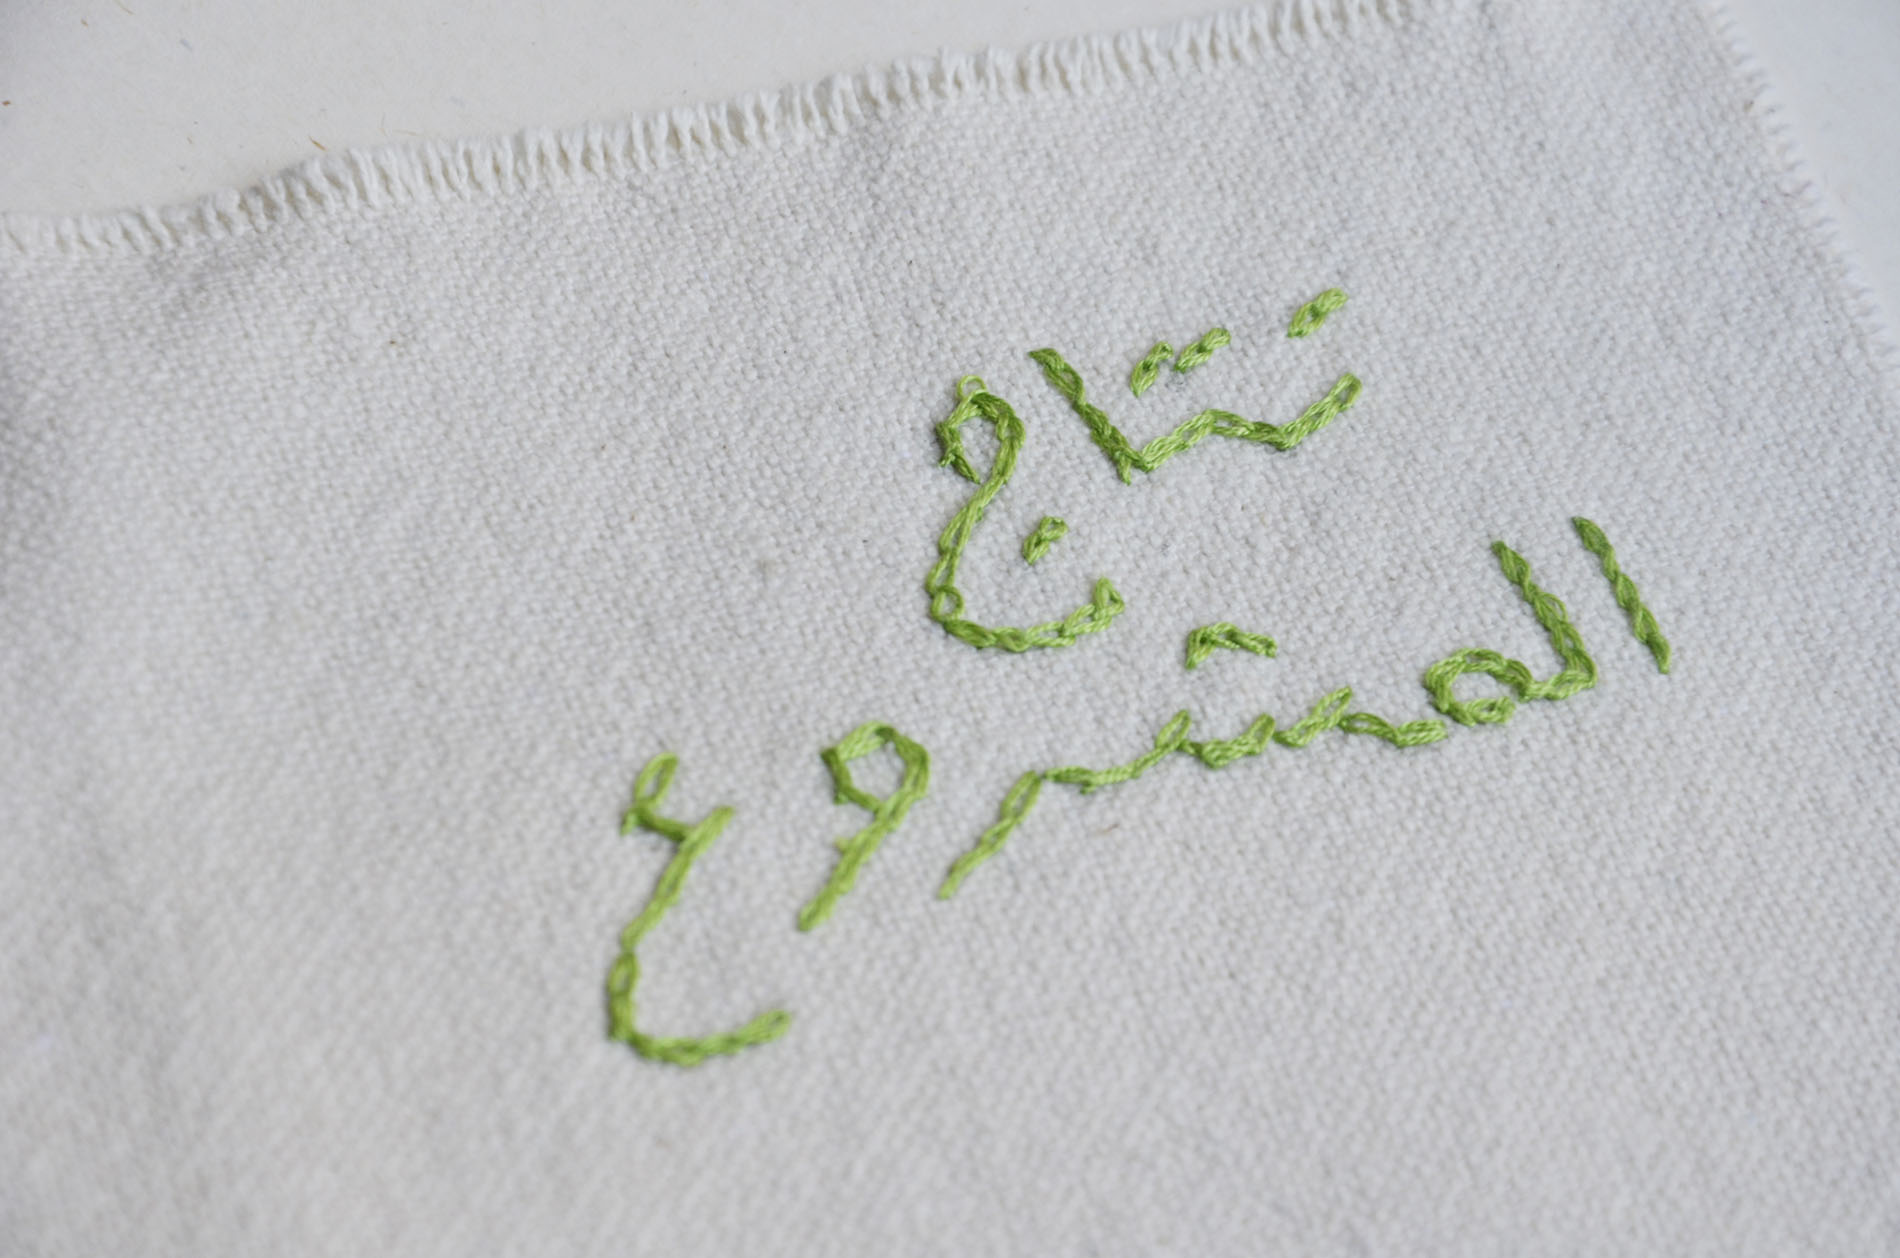 نتاج
المشروع